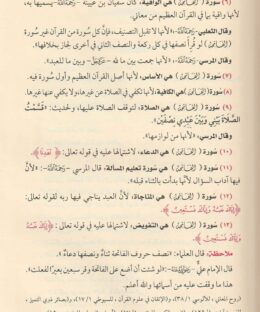 (٦) سورة ﴿الفاتحة﴾ هي الوافية، كان سفيان بن عيينة -رحمه الله- يسميها،
لأنها وافية بما في القرآن العظيم من معاني.
وقال الثعلبي -رحمه الله-: «لأنها لا تقبل التنصيف، فإن كل سورة من القرآن غير سورة
﴿الفاتحة﴾ لو قرأ نصفها في كل ركعة والنصف الثاني في أخرى لجاز بخلافها».
وقال المرسي -رحمه الله-: «لأنها جمعت بين ما لله -عز وجل- وبين ما للعبد».
(٧) سورة ﴿الفاتحة﴾ هي الأساس، لأنها أصل القرآن العظيم وأول سورة فيه.
(٨) سورة ﴿الفاتحة﴾ هي الكافية، لأنها تكفي في الصلاة عن غيرها، ولا يكفي عنها غيرها.
(٩) سورة ﴿الفاتحة﴾ هي الصلاة، لتوقف الصلاة عليها، ولحديث: «قسمت
الصلاة بيني وبين عبدي نصفين».
وقال المرسي: «لأنها من لوازمها».
(١٠) سورة ﴿الفاتحة﴾ هي الدعاء، لاشتمالها عليه في قوله تعالى: ﴿اهدنا﴾.
(١١) سورة ﴿الفاتحة﴾ هي سورة تعليم المسألة، قال المرسي -رحمه الله-: «لأن
فيها آداب السؤال لأنها بدأت بالثناء قبله».
(١٢) سورة ﴿الفاتحة﴾ هي المناجاة، لأن العبد يناجي فيها ربه لقوله تعالى: ﴿إياك نعبد
وإياك نستعين﴾.
(١٣) سورة ﴿الفاتحة﴾ هي التفويض، لاشتمالها عليه في قوله تعالى: ﴿إياك نعبد
وإياك نستعين﴾.
ملاحظة: قال العلماء: نصف حروف الفاتحة ثناء ونصفها دعاء.
قال الإمام علي: «لو شئت أن أضع على الفاتحة وقر سبعين بعيرا لفعلت».
هذا ما وقفت عليه من أسمائها والله أعلم.
(روح المعاني، للآلوسي ٣٨/١)، و(الإتقان في علوم القرآن، للسيوطي ١٦٧/١)، و(بصائر ذوي التمييز،